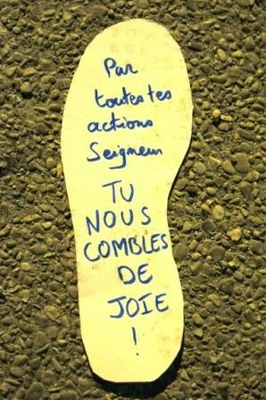 Par
toutes tes
actions
Seigneur
TU
NOUS
COMBLES
DE
JOIE
!